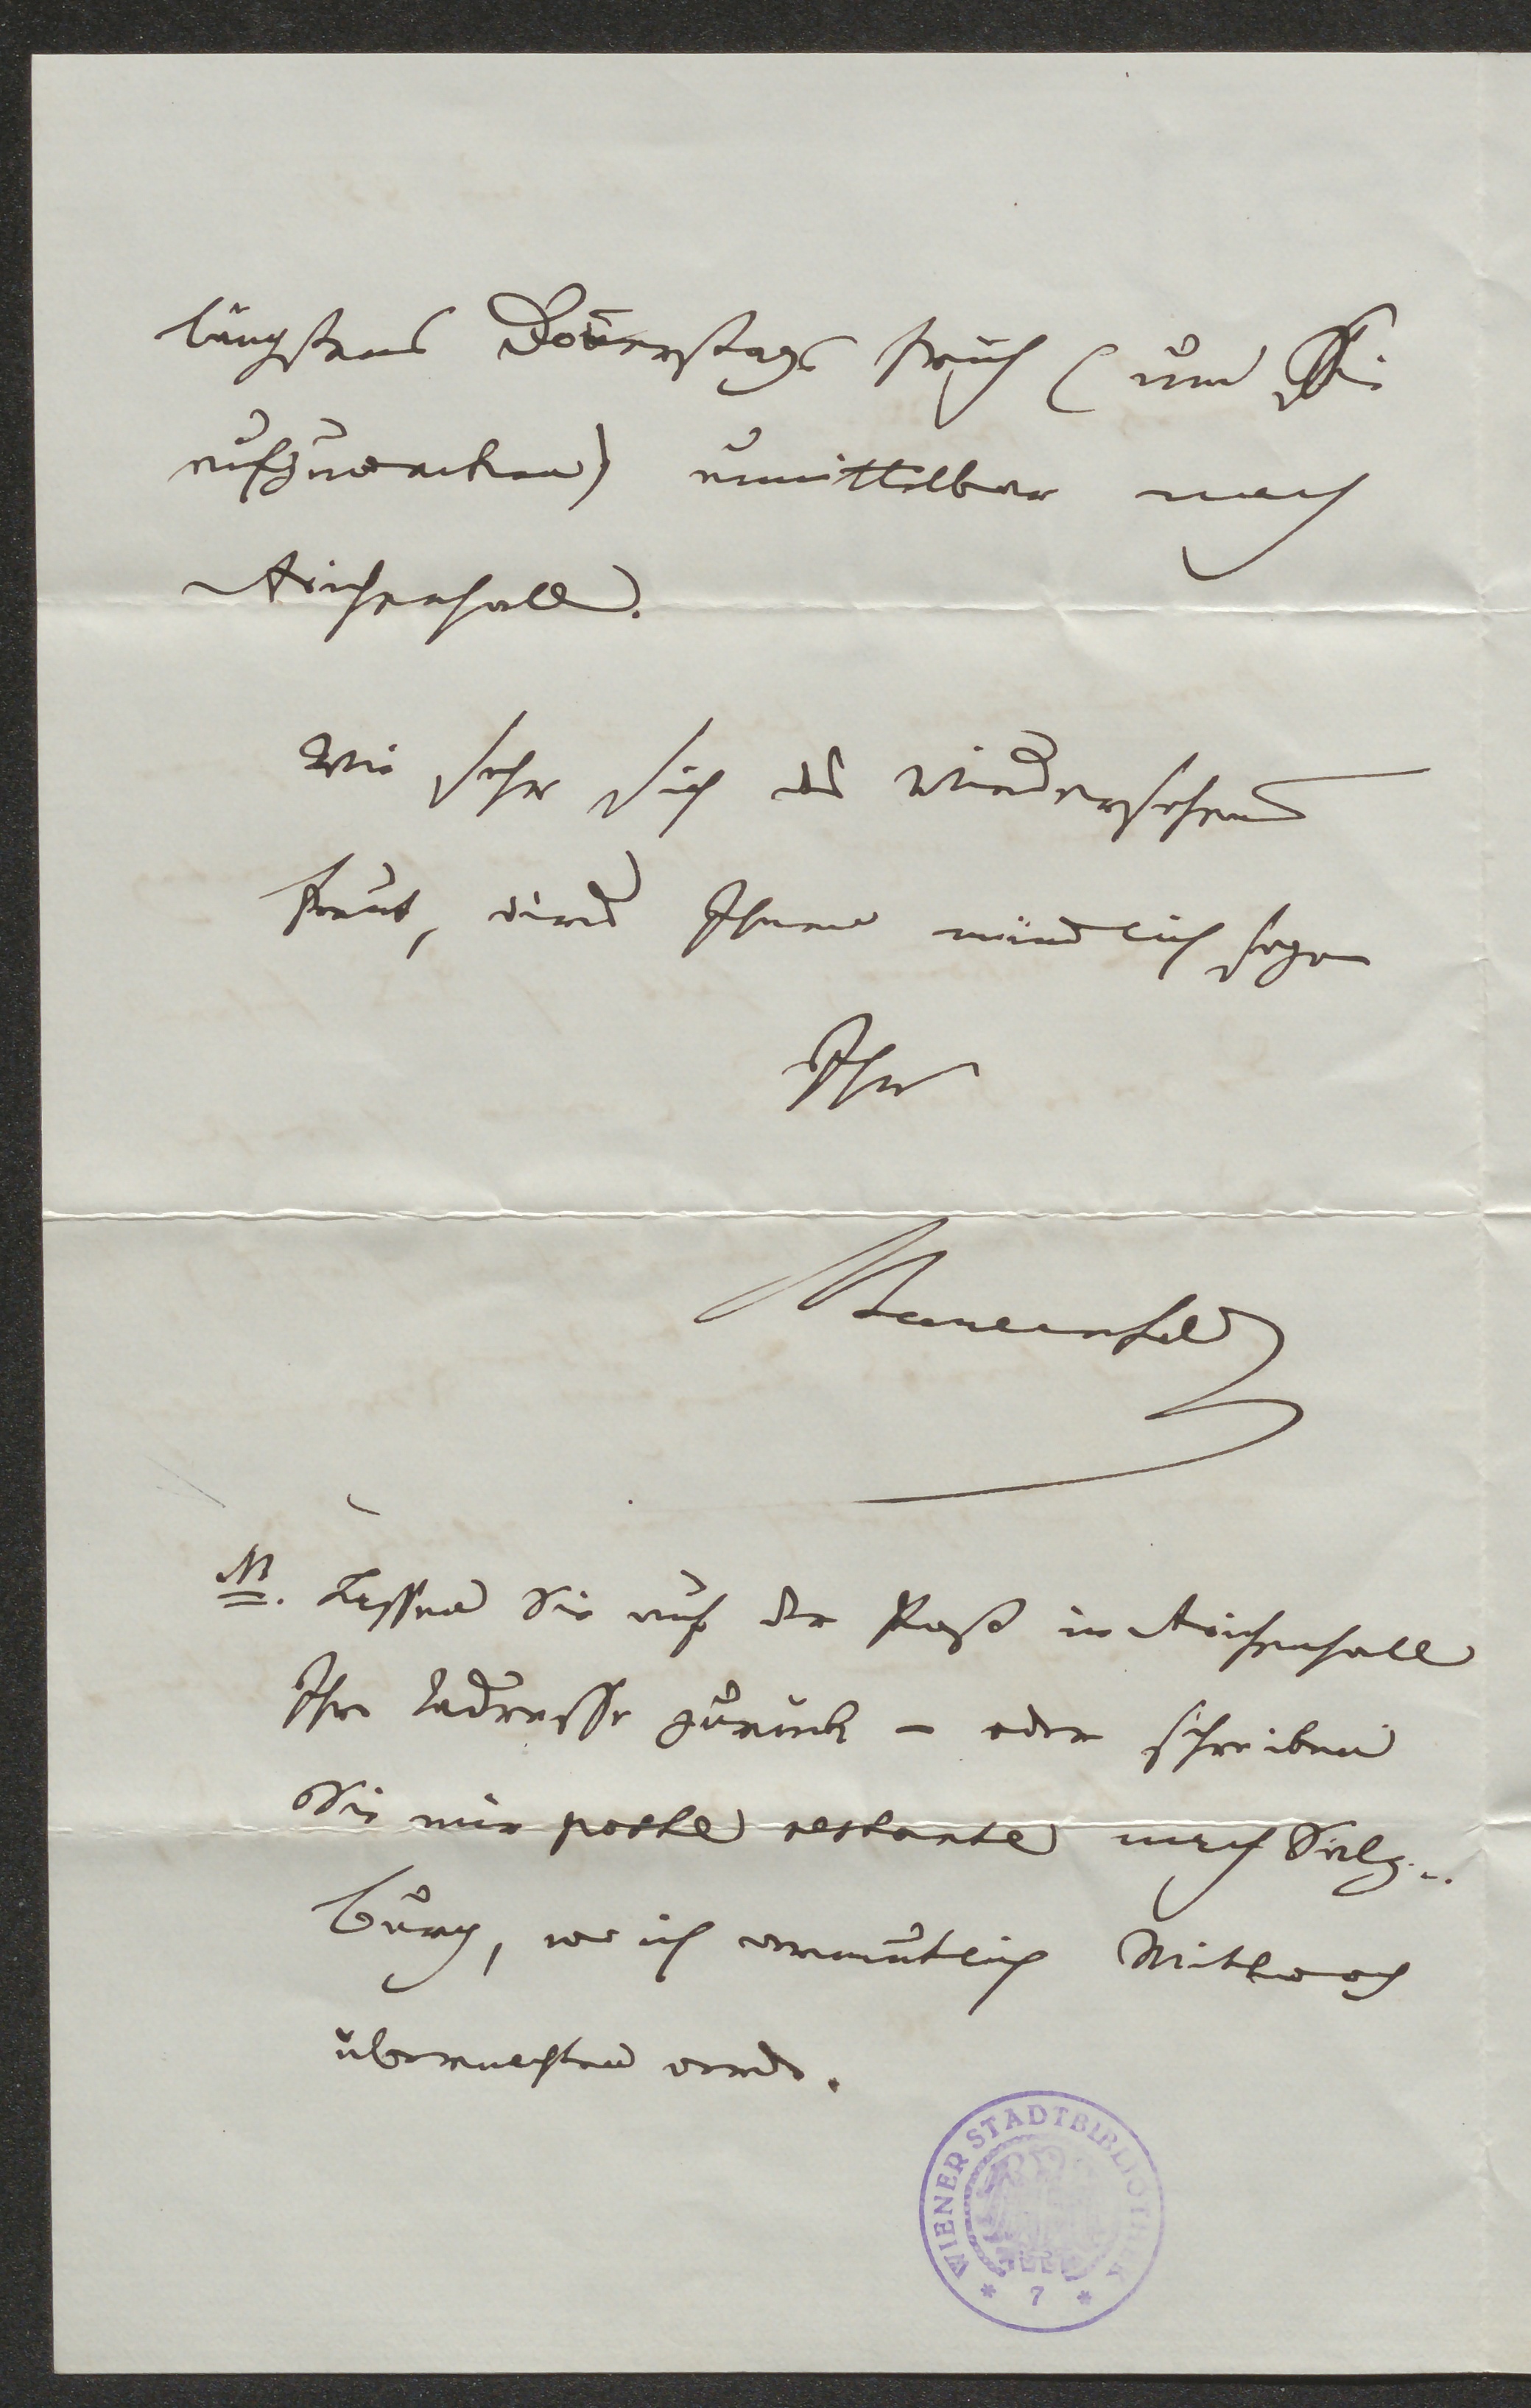 längstens Donnerstags früh (um Sie
aufzuwecken) unmittelbar nach
Reichenhall.
Wie sehr sich des Wiedersehens
freut, wird Ihnen mündlich sagen
Ihr
Bauernfeld
NB. Lassen Sie auf der Post in Reichenhall
Ihre Adresse zurück – oder schreiben
Sie mir poste restante nach Salz-
burg, wo ich vermutlich Mittwoch
übernachten werde.
WIENER STADTBIBLIOTHEK
* 7 *